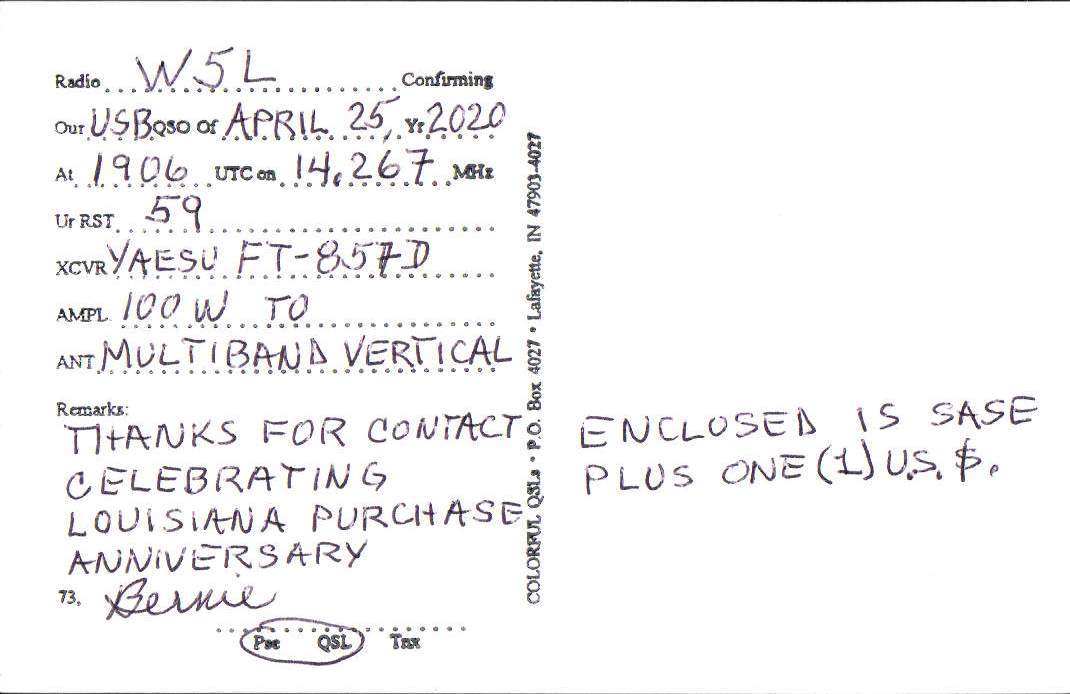 Radio W5L Confirming
Our USB QSO of APRIL 25, Yr 2020
At 1906 UTC on 14.267 MHz
Ur RST 59
XCVR YAESU FT-857D
AMPL 100 W TO
ANT MULTIBAND VERTICAL
Remarks:
THANKS FOR CONTACT
CELEBRATING
LOUISIANA PURCHASE
ANNIVERSARY
73, Bernie
Pse QSL Tnx
COLORFUL QSLs • P.O. Box 4027 • Lafayette, IN 47903-4027
ENCLOSED IS SASE
PLUS ONE (1) U.S. $.